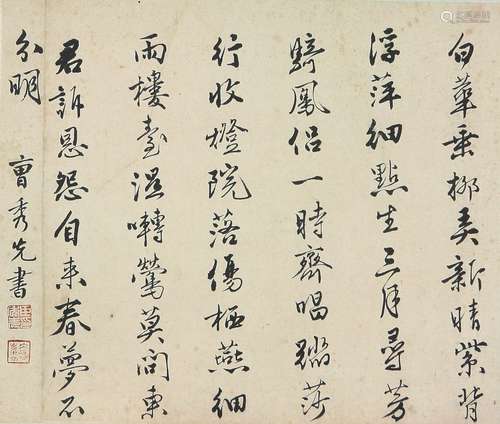 白華垂柳弄新晴紫背
浮萍細點生三月尋芳
騎鳳侶一時齊唱踏莎
行收燈院落傷栖燕細
雨樓臺濕囀鶯莫問東
君訴恩怨自来春夢不
分明
曹秀先書